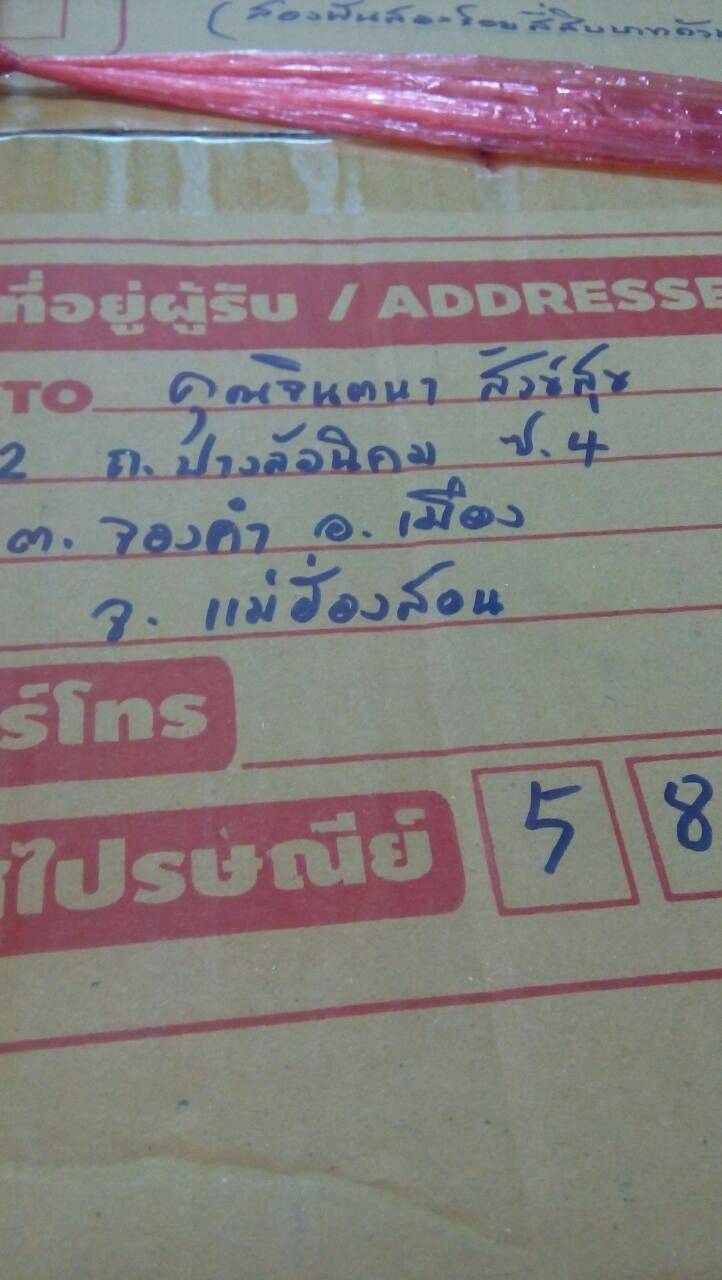 (สองพันสองร้อยสี่สิบบาทถ้วน
ที่อยู่ผู้รับ / ADDRESSE
TO คุณจินตนา สังข์สุข
2 ถ.ปางล้อนิคม ซ.4
ต. จองคำ อ. เมือง
จ. แม่ฮ่องสอน
ร์โทร
ไปรษณีย์ 5 8